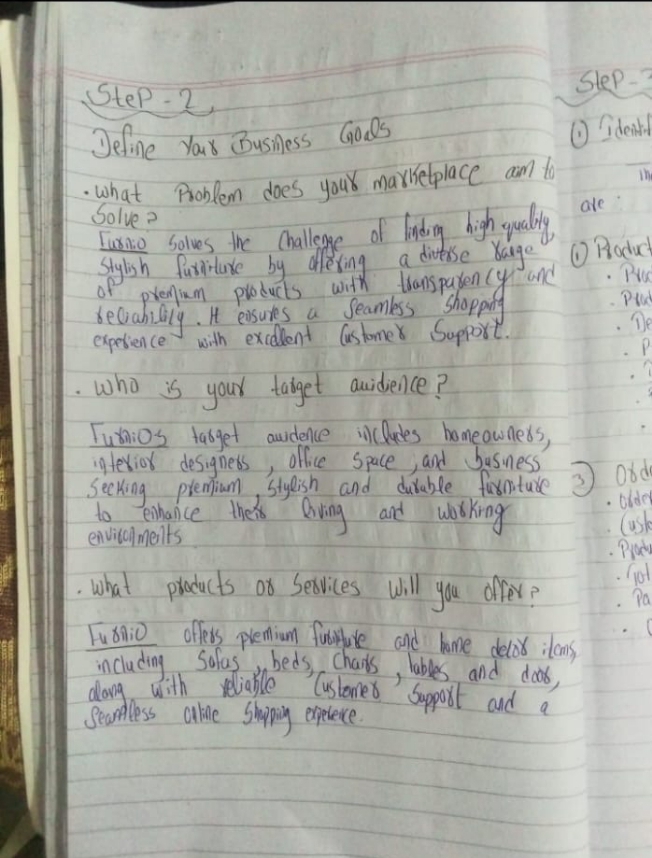 Step - 2
Define Your Business Goals
· What Problem does your marketplace aim to
Solve?
Furnio Solves the Challenge of finding high quality,
Stylish furniture by offering a diverse range
of premium products with transparency and
reliability. It ensures a Seamless Shopping
experience with excellent Customer Support.
· Who is your target auidience?
FurniOs target audence includes homeowners,
interior designers, office Space, and business
Seeking premium, Stylish and durable furniture
to enhance thers living and working
enviroments
· What products or Services will you offer?
Furnio offers premium furniture and home decor items,
including Sofas, beds, Chairs, tables and door,
along with reliable Customer Support and a
Seamless online Shopping experience.
Step - 3
① Identif
are :
① Product
③ Orde
· Order